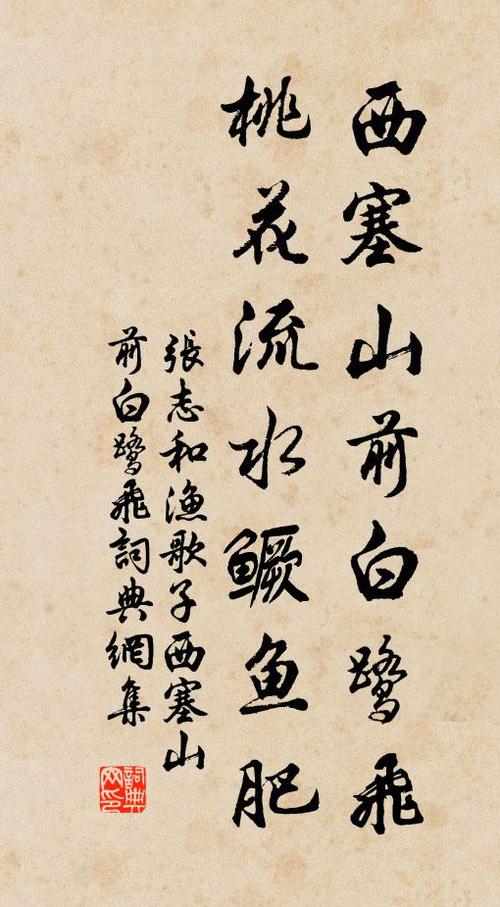 西塞山前白鹭飛
桃花流水鳜鱼肥
張志和漁歌子西塞山
前白鹭飛詞典網集
詞典
网印